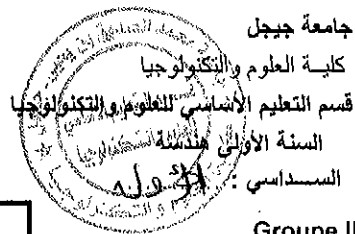 جامعة جيجل
كليـة العلوم والتكنولوجيا
قسم التعليم الأساسي للعلوم والتكنولوجيا
السنة الأولى هندسة
السـداسي : الأول
Groupe II